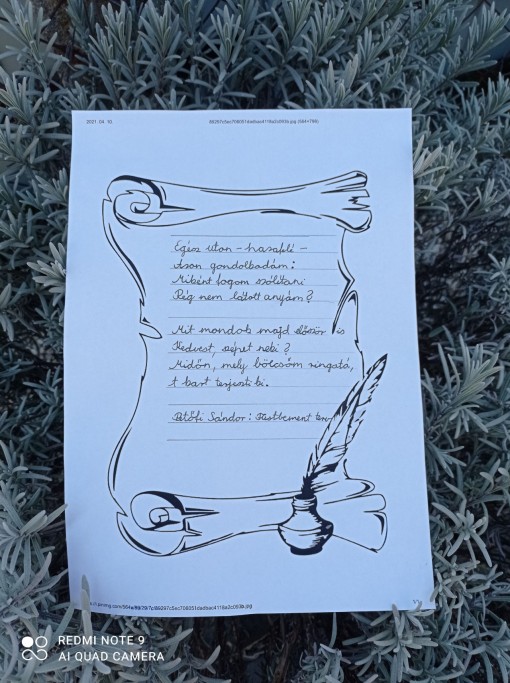 2021. 04. 10.
Egész uton – hazafelé –
Azon gondolkodám:
Miként fogom szólítani
Rég nem látott anyám?
Mit mondok majd először is
Kedvest, szépet neki?
Midőn, mely bölcsőm ringatá,
A kart terjeszti ki.
Petőfi Sándor: Füstbement terv
REDMI NOTE 9
AI QUAD CAMERA